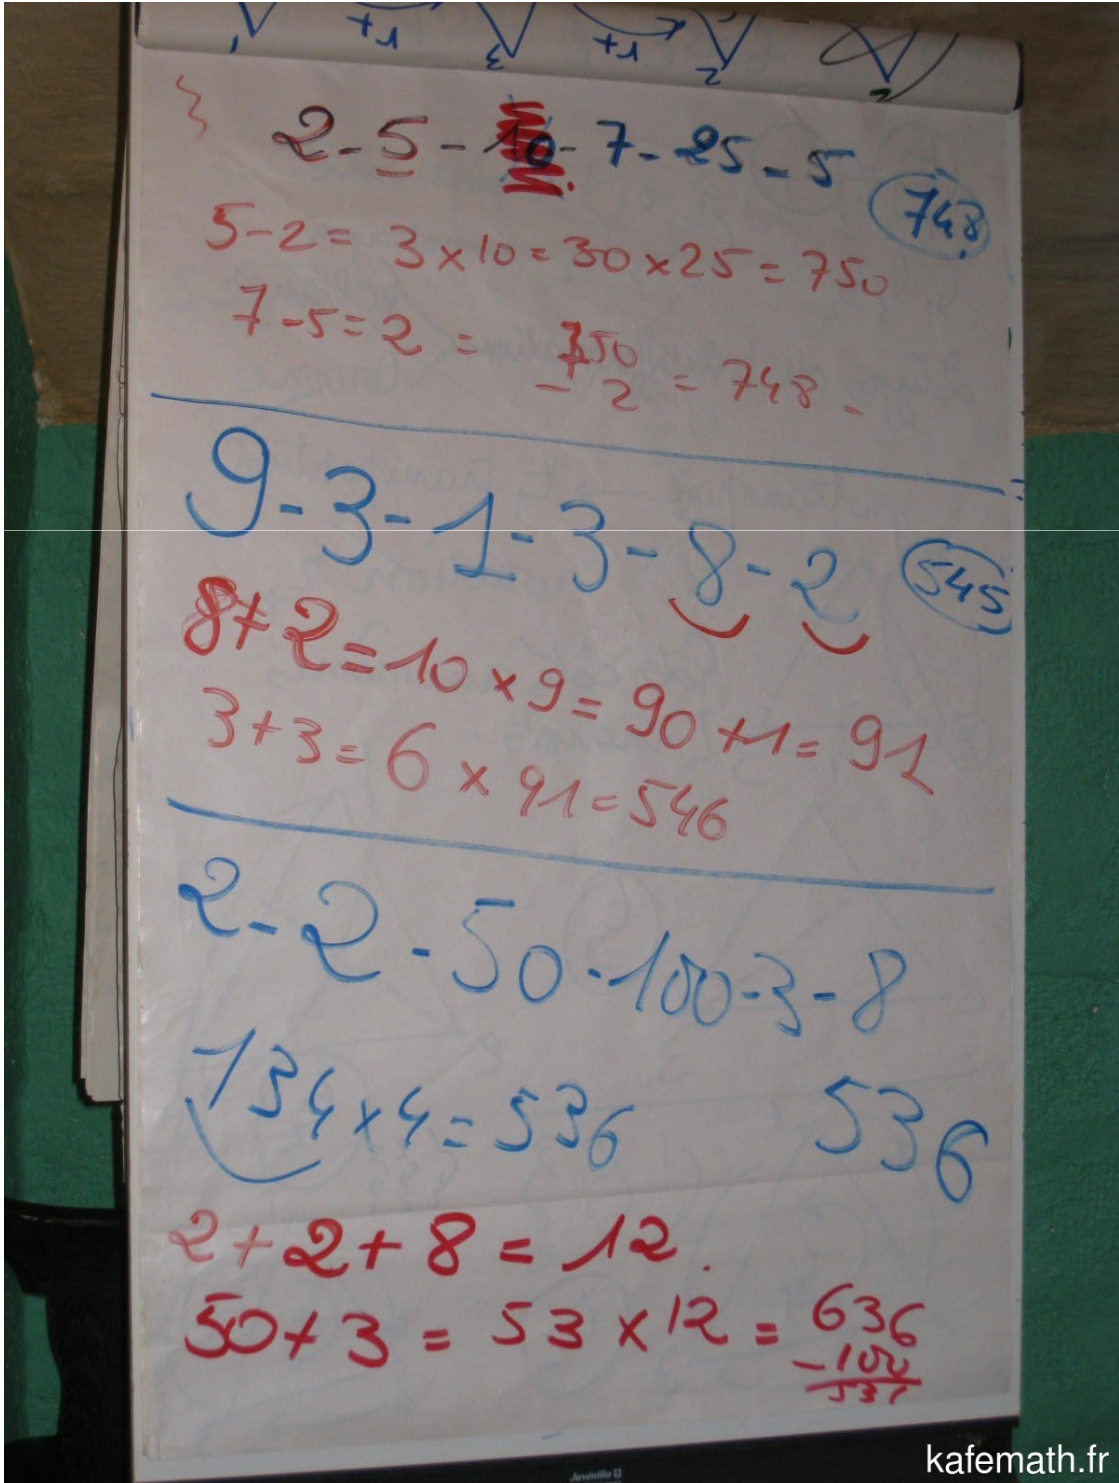 +1 3 +1 2
2 - 5 - 10 - 7 - 25 - 5 748
5 - 2 = 3 × 10 = 30 × 25 = 750
7 - 5 = 2 = 750
- 2 = 748 -
9 - 3 - 1 - 3 - 8 - 2 545
8 + 2 = 10 × 9 = 90 + 1 = 91
3 + 3 = 6 × 91 = 546
2 - 2 - 50 - 100 - 3 - 8
134 × 4 = 536 536
2 + 2 + 8 = 12.
50 + 3 = 53 × 12 = 636
- 100
536
kafemath.fr